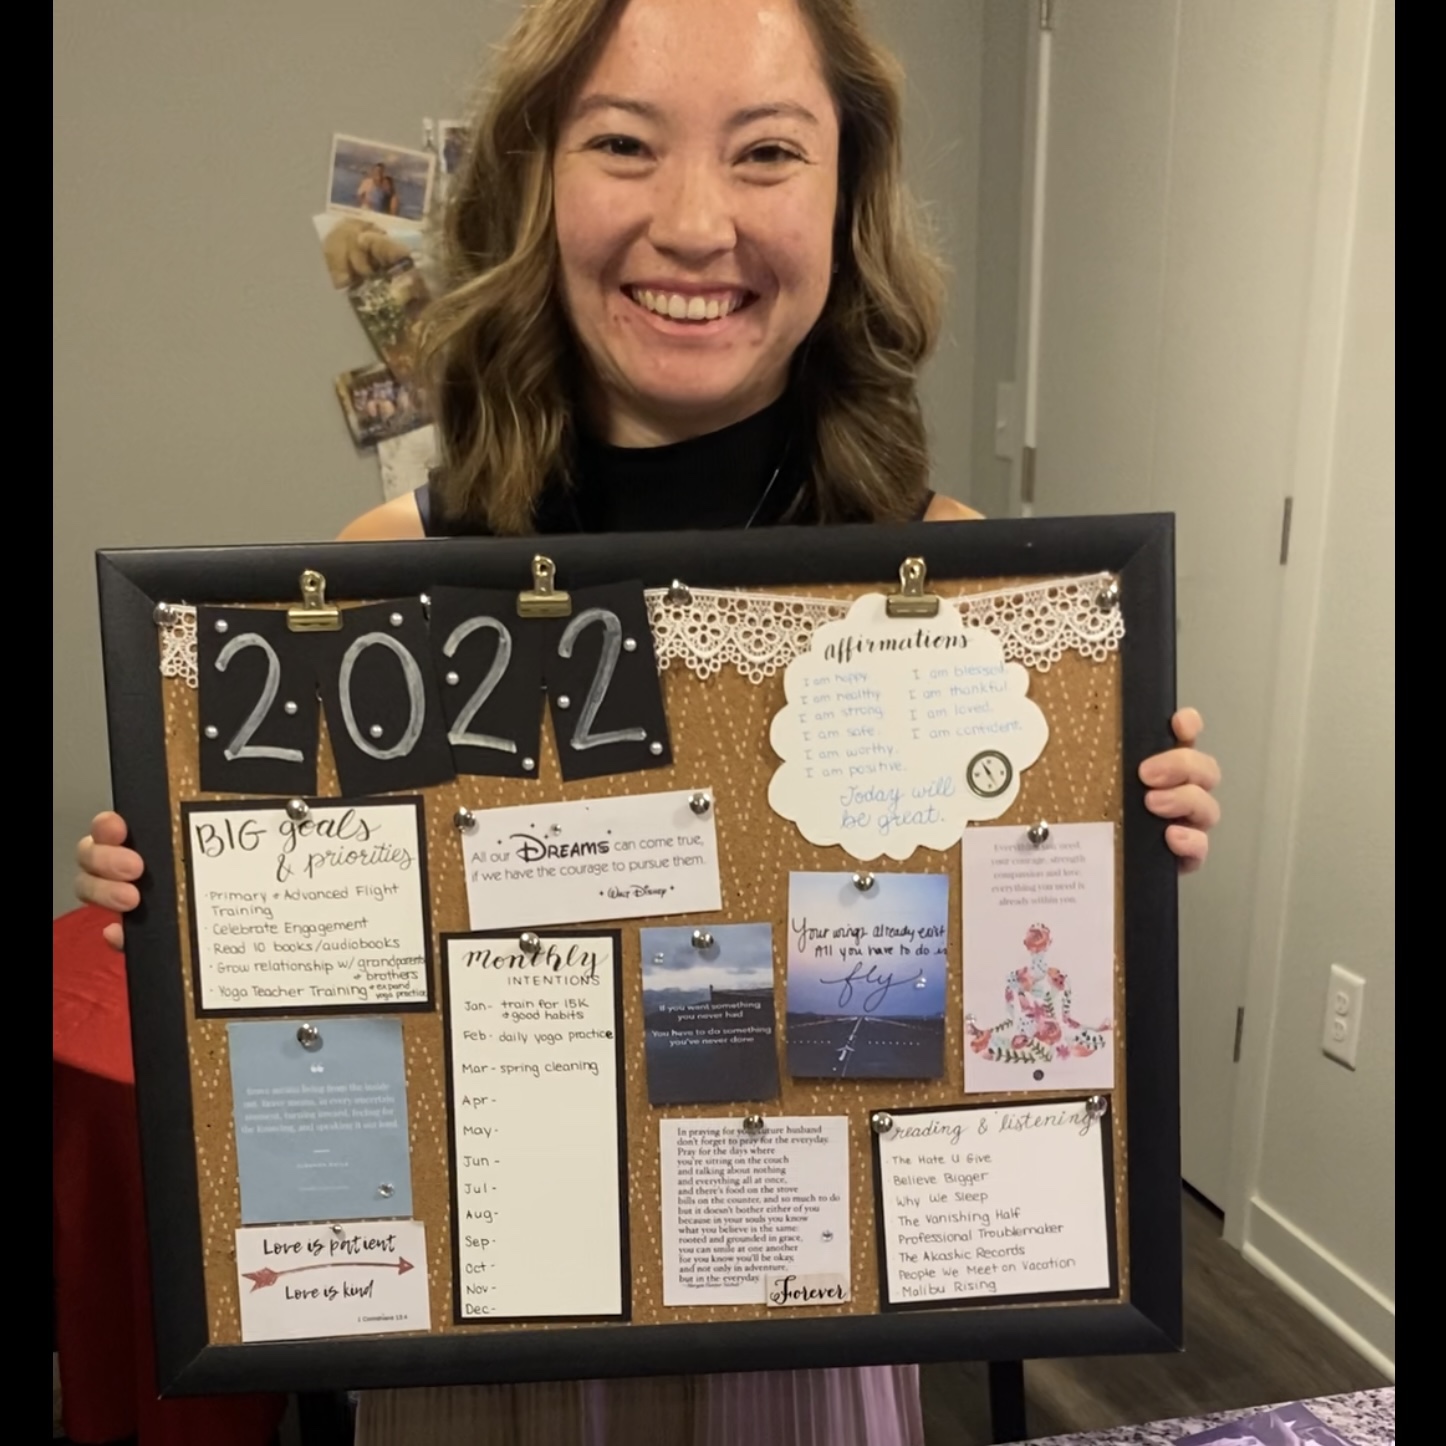 2022
affirmations
I am happy.
I am healthy.
I am strong.
I am safe.
I am worthy.
I am positive.
I am blessed.
I am thankful.
I am loved.
I am confident.
Today will
be great.
BIG goals
& priorities
· Primary + Advanced Flight
Training
· Celebrate Engagement
· Read 10 books/audiobooks
· Grow relationship w/ grandparents
+ brothers
· Yoga Teacher Training + expand
yoga practice
All our DREAMS can come true,
if we have the courage to pursue them.
• Walt Disney •
monthly
INTENTIONS
Jan- train for 15K
+ good habits
Feb- daily yoga practice
Mar- spring cleaning
Apr-
May-
Jun-
Jul-
Aug-
Sep-
Oct-
Nov-
Dec-
If you want something
you never had
You have to do something
you've never done
Your wings already exist
All you have to do is
fly
Everything you need,
your courage, strength
compassion and love;
everything you need is
already within you.
“
Brave means living from the inside
out. Brave means, in every uncertain
moment, turning inward, feeling for
the Knowing, and speaking it out loud.
Love is patient
Love is kind
1 Corinthians 13:4
In praying for your future husband
don't forget to pray for the everyday.
Pray for the days where
you're sitting on the couch
and talking about nothing
and everything all at once,
and there's food on the stove
bills on the counter, and so much to do
but it doesn't bother either of you
because in your souls you know
what you believe is the same:
rooted and grounded in grace,
you can smile at one another
for you know you'll be okay,
and not only in adventure,
but in the everyday.
Forever
reading & listening
· The Hate U Give
· Believe Bigger
· Why We Sleep
· The Vanishing Half
· Professional Troublemaker
· The Akashic Records
· People We Meet on Vacation
· Malibu Rising